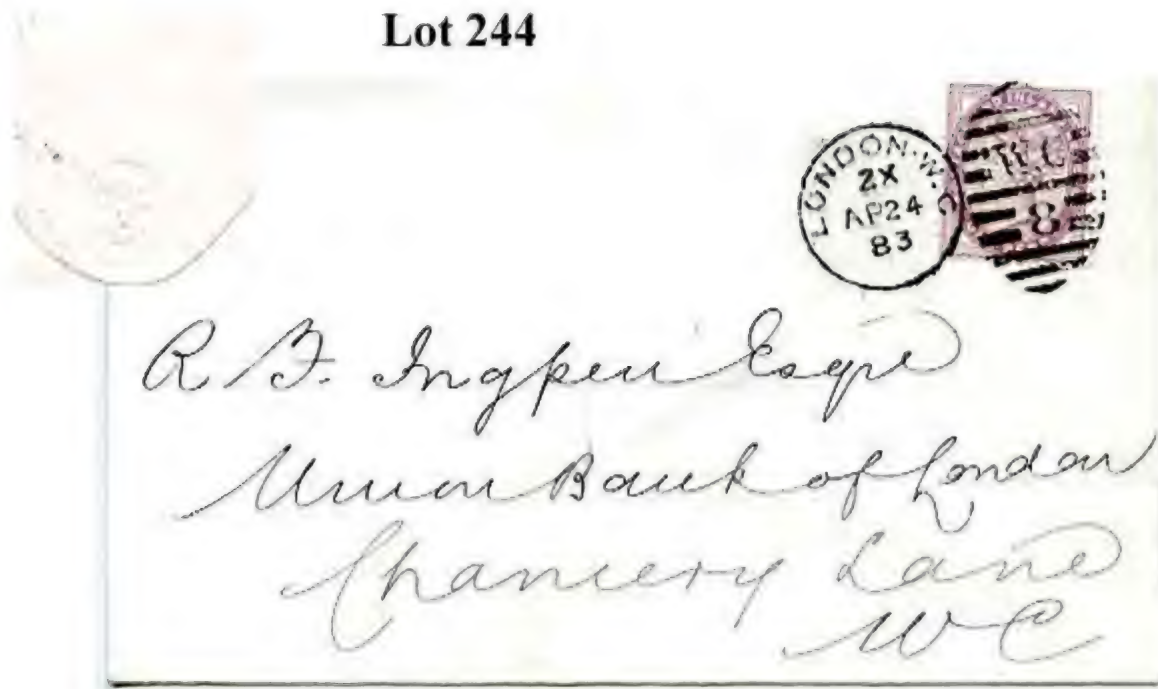 Lot 244
LONDON·W.C
2X
AP24
83
W.C
8
R F. Ingpen Esqre
Union Bank of London
Chancery Lane
W C